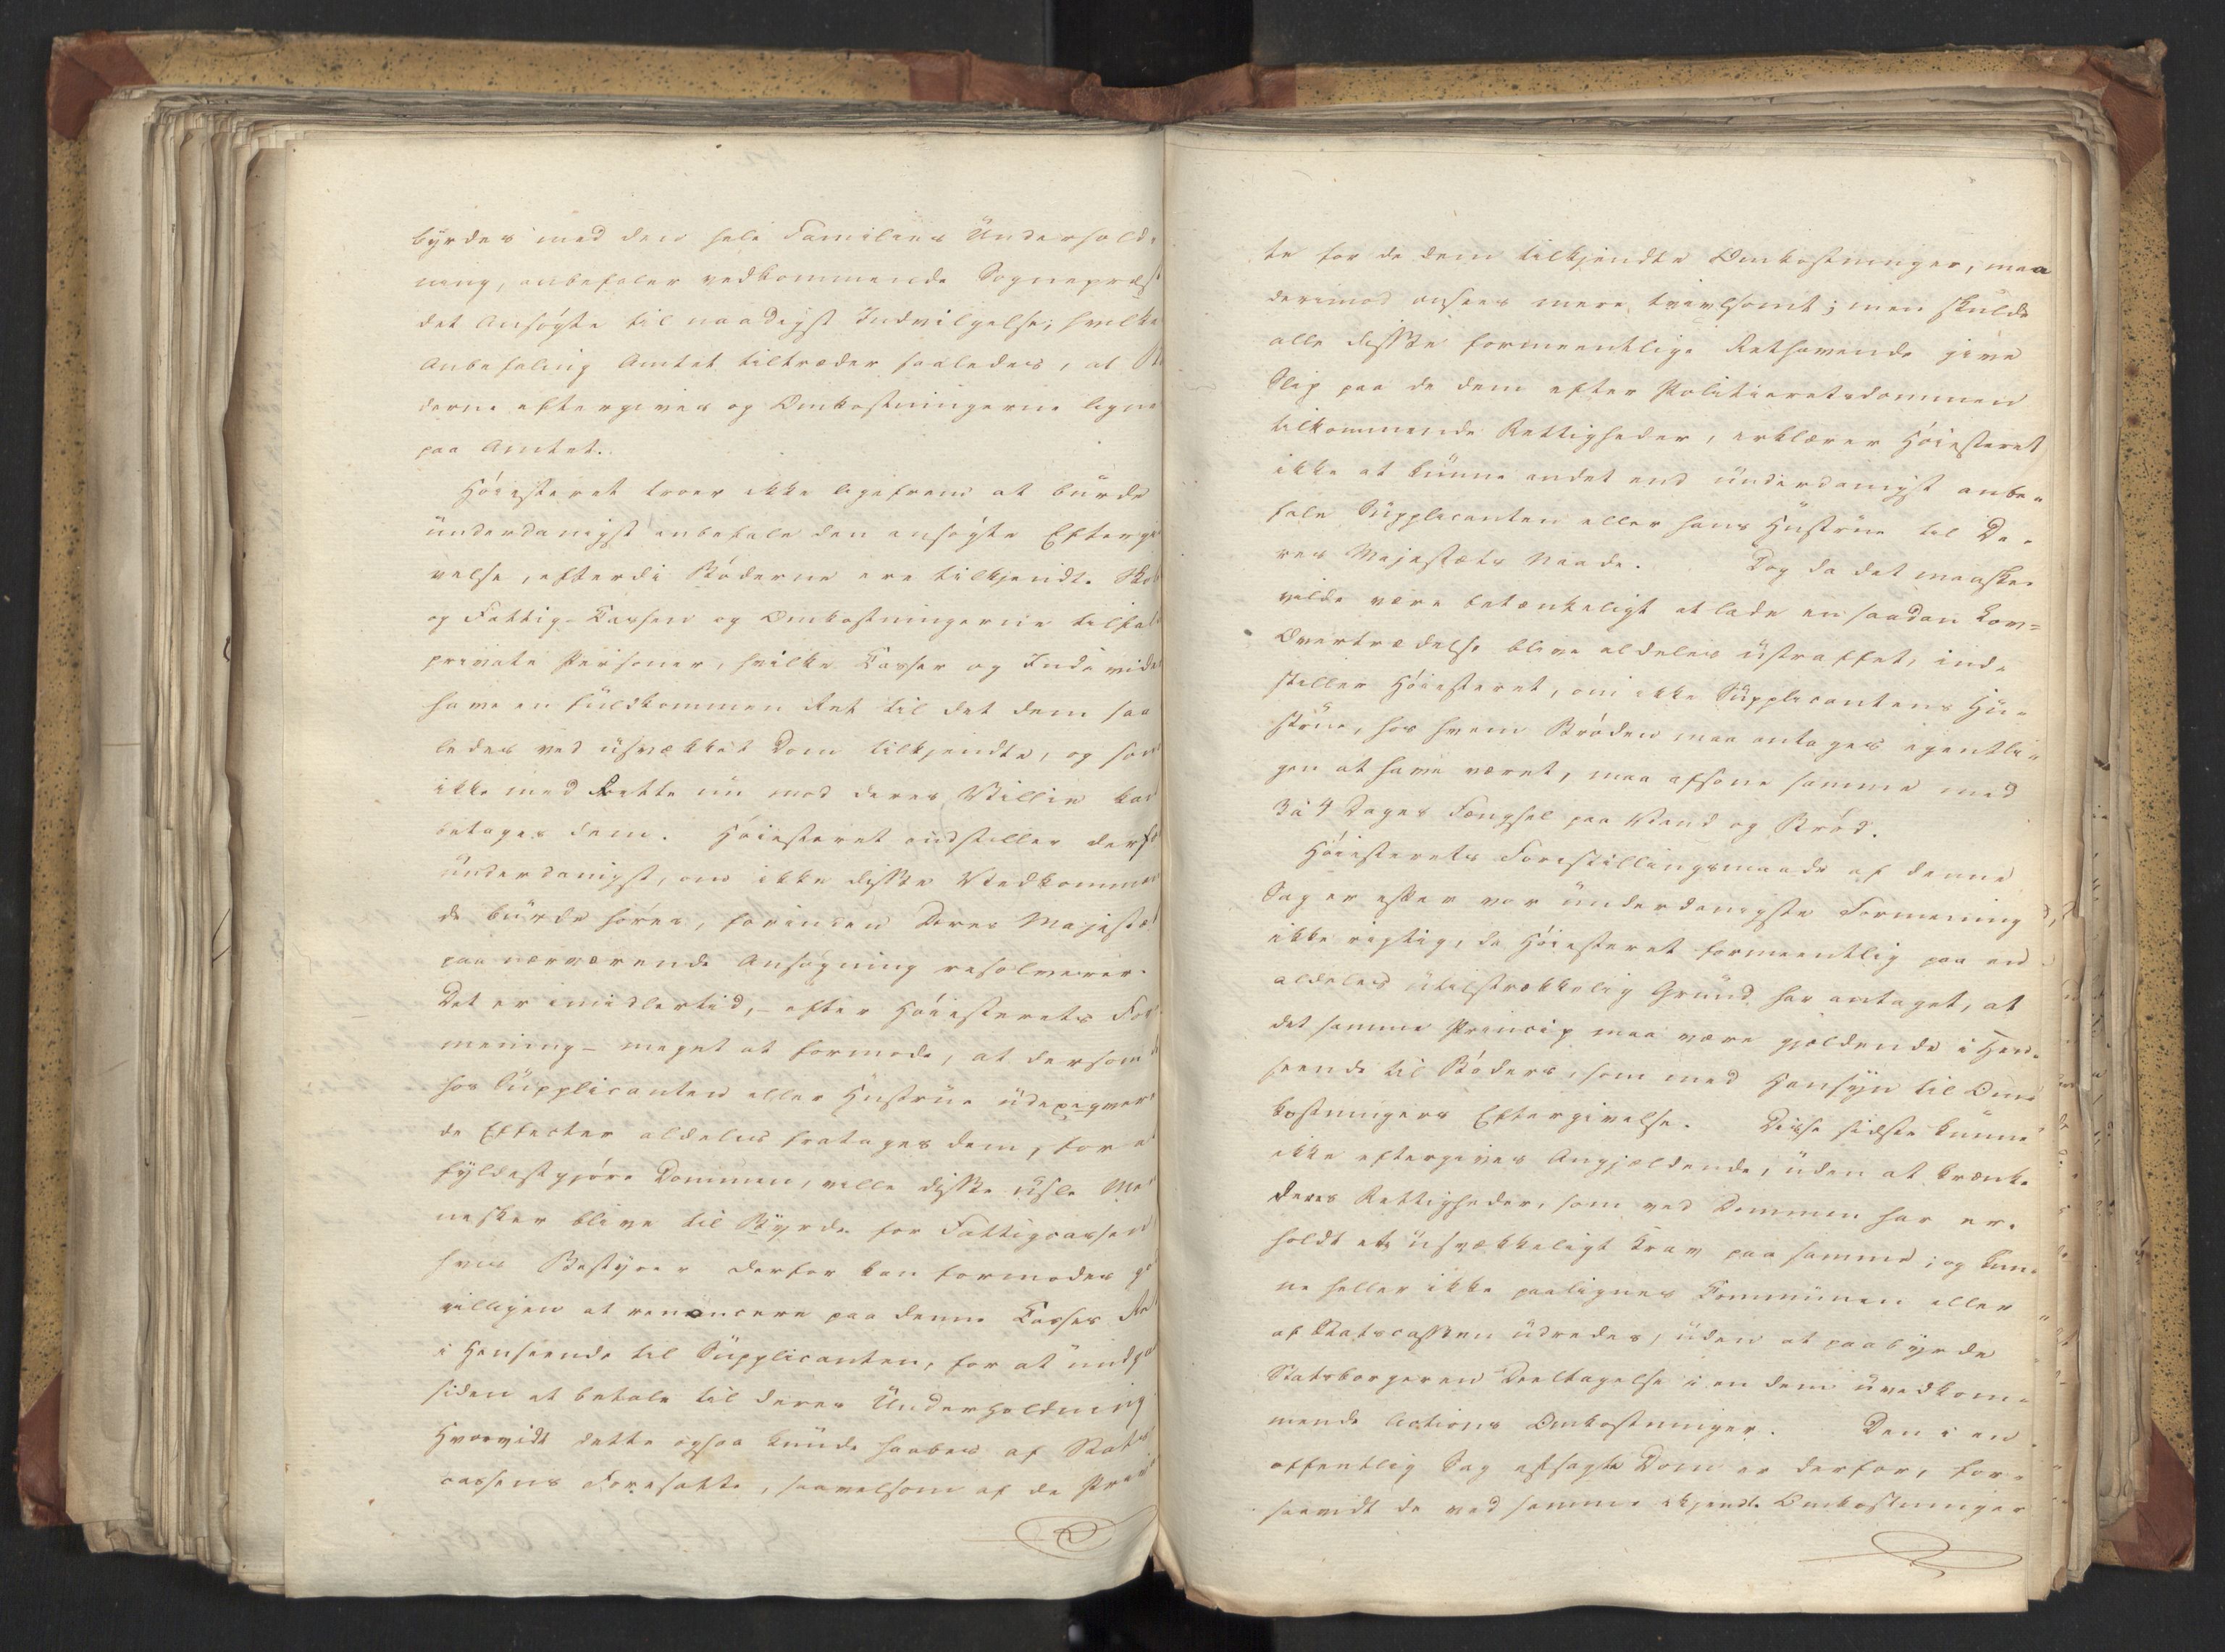 byrdes med den hele Familiens Underhold-
ning, anbefaler vedkommende Sognepræst
det Ansøgte til naadigst Indvilgelse; hvilke
Anbefaling Amtet tiltræder saaledes, at Bø
derne eftergives og Omkostningerne ligne
paa Amtet.
Høiesteret troer ikke ligefrem at burde
underdanigst anbefale den ansøgte Eftergi
velse, efterdi Bøderne ere tilkjendt
og Fattig-Cassen og Omkostningerne tilfal
private Personer, hvilke Casser og Individ
have en fuldkommen Ret til det dem saa
ledes ved usvækket Dom tilkjendte, og som
ikke med Rette nu mod deres Villie kan
betages dem. Høiesteret indstiller derfo
underdanigst, om ikke disse Vedkommen
de burde høres, forinden Deres Majestæt
paa nærværende Ansøgning resolverer.
Det er imidlertid, - efter Høiesterets For
mening - meget at formode, at dersom d
hos Supplicanten eller Hustrue udpegver
de Effecter aldeles fratages dem, for at
fyldestgjøre Dommen, ville disse usle Men
nesker blive til Byrde for Fattigcassen
hvis Bestyrer derfor kan formodes g
villigen at renoncere paa denne Casses Ret
i Henseende til Supplicanten, for at undga
siden at betale til deres Underholdning
Hvorvidt dette ogsaa kunde haabes af Stats
cassens Foresatte, saavelsom af de Priva
te for de dem tilkjendte Omkostninger, maa
derimod ansees mere tvivlsomt; men skulde
alle disse formeentlige Rethavende give
Slip paa de dem efter Politieretsdommen
tilkommende Rettigheder, erklærer Høiesteret
ikke at kunne andet end underdanigst anbe-
fale Supplicanten eller hans Hustrue til De-
res Majestæts Naade. Dog da det maaskee
vilde være betænkeligt at lade en saadan Lov=
Overtrædelse blive aldeles ustraffet, ind-
stiller Høiesteret, om ikke Supplicantens Hu-
strue, hos hvem Brøden maa antages egentli-
gen at have været, maa afsone samme med
3 à 4 Dages Fængsel paa Vand og Brød.
Høiesterets Forestillingsmaade af denne
Sag er efter vor underdanigste Formening
ikke rigtig, da Høiesteret formeentlig paa en
aldeles utilstrækkelig Grund har antaget, at
det samme Princip maa være gjældende i Hen-
seende til Bøders, som med Hensyn til Om-
kostningers Eftergivelse. Disse sidste kunne
ikke eftergives Angjældende, uden at krænke
deres Rettigheder, som ved Dommen har er-
holdt et usvækkeligt Krav paa samme; og kun-
ne heller ikke paalignes Communen eller
af Statscassen udredes, uden at paabyrde
Statsborgeren Deeltagelse i en dem uvedkom-
mende Actions Omkostninger. Den i en
offentlig Sag afsagte Dom er derfor, for-
saavidt de ved samme ikjendte Omkostninger